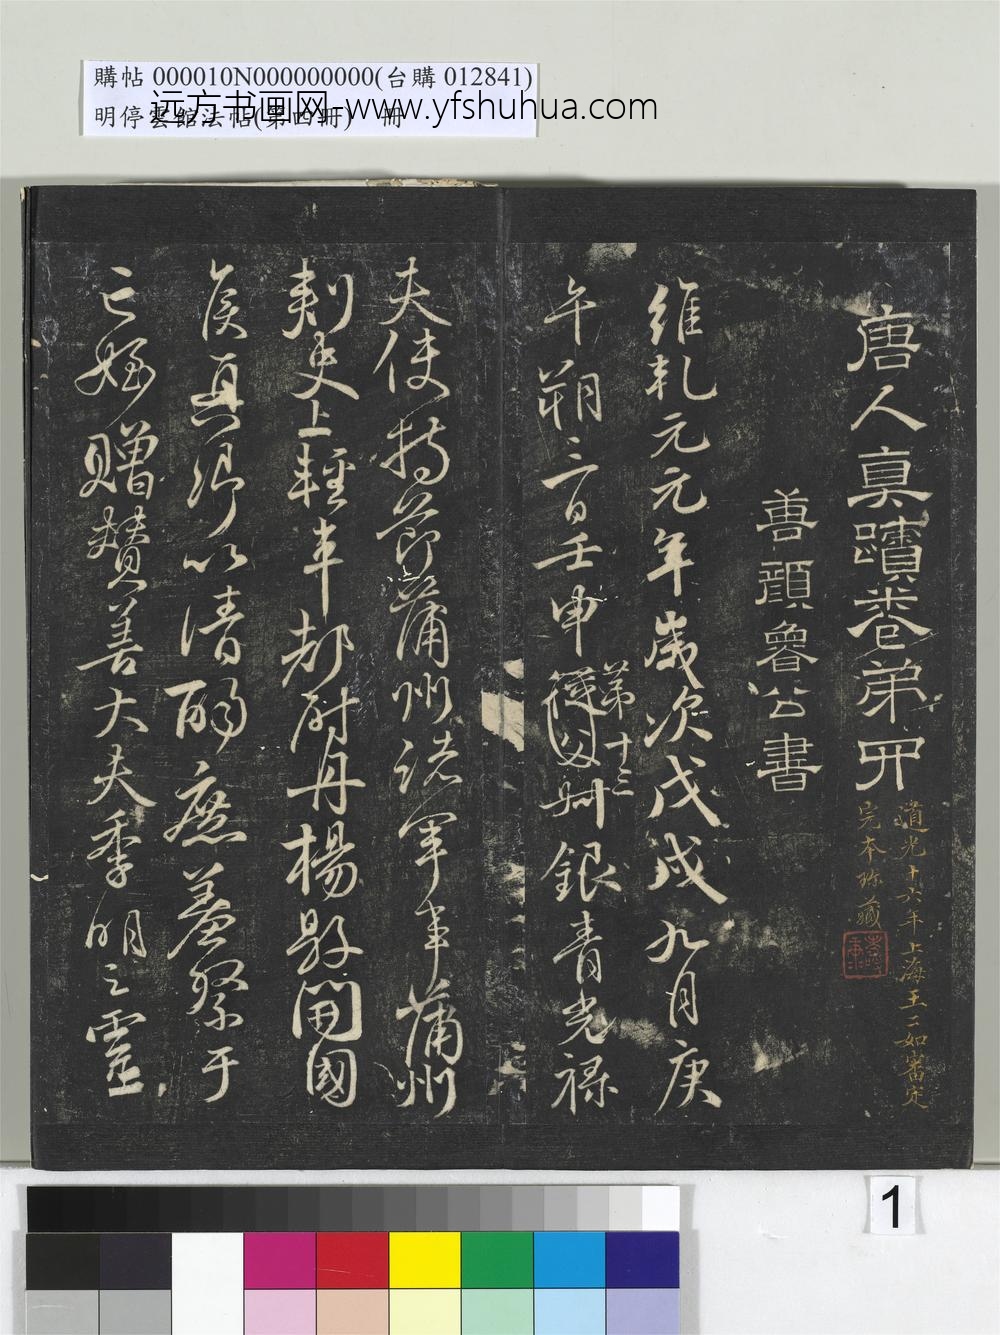 購帖 000010N000000000(台購 012841)
明停雲館法帖(第四冊) 一冊
远方书画网-www.yfshuhua.com
唐人真蹟卷弟四
道光十六年上海王二如審定
完本珍藏
善顔魯公書
維乾元元年歲次戊戌九月庚
午朔三日壬申第十三從父銀青光祿
夫使持節蒲州諸軍事蒲州
刺史上輕車都尉丹楊縣開國
侯真卿以清酌庶羞祭于
亡姪贈賛善大夫季明之靈
1